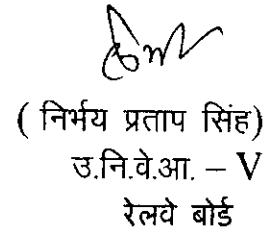 ( निर्भय प्रताप सिंह)
उ.नि.वे.आ. – V
रेलवे बोर्ड